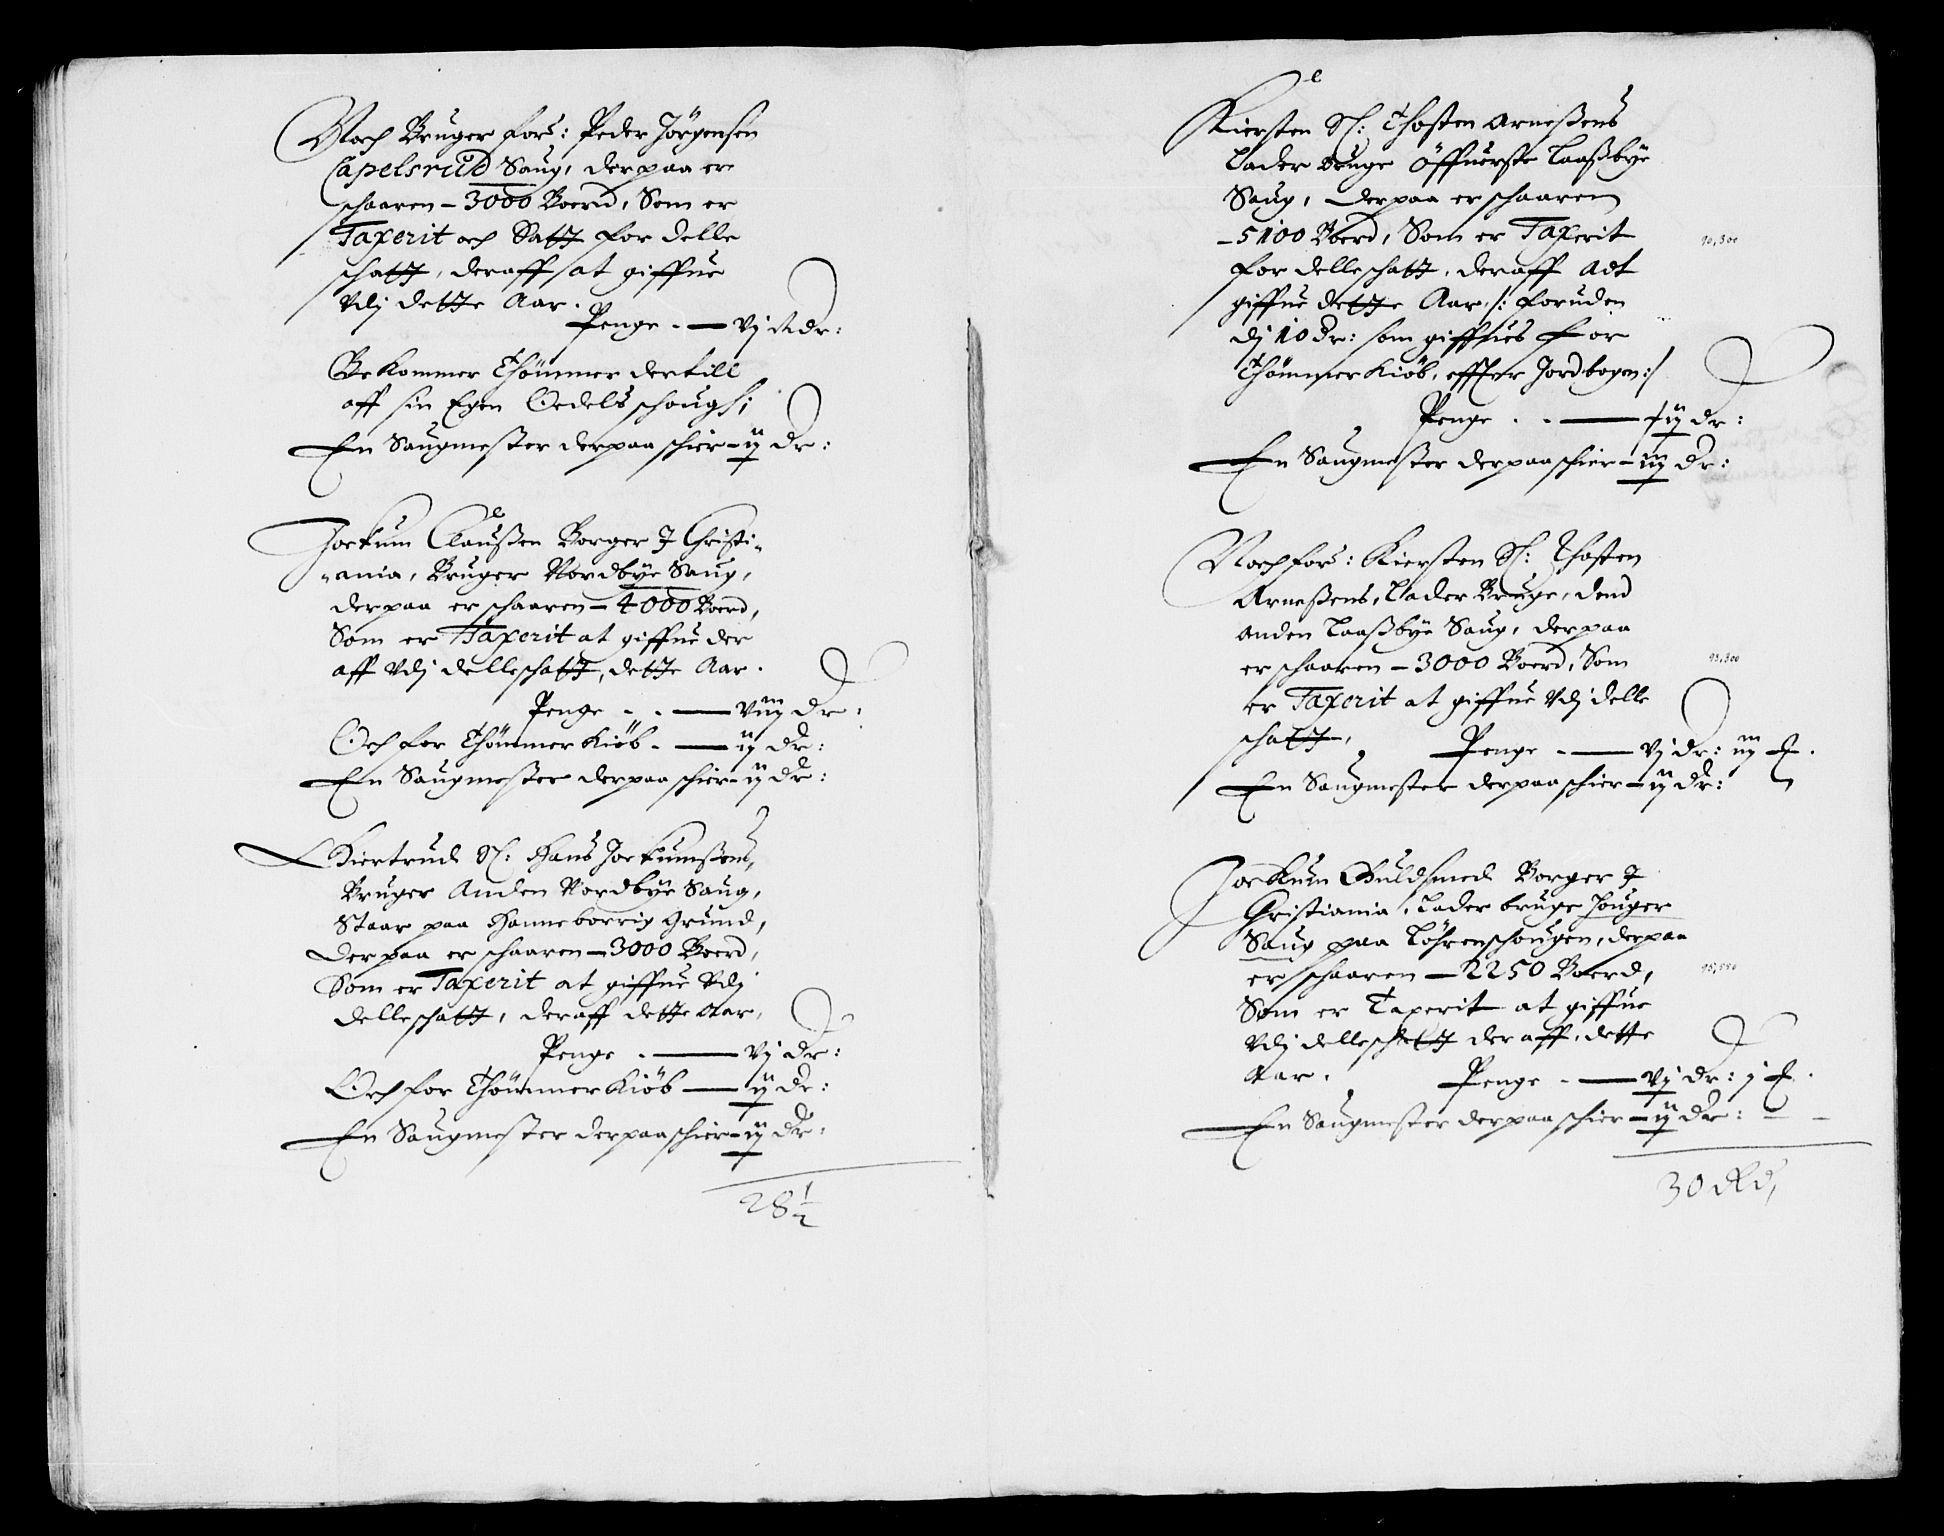 Noch Bruger fors: Peder Jörgensen
Capelsrud Saug, derpaa er
schaaren - 3000 Boerd, Som er
Taxerit och Satt for delle
schatt, deraff at giffue
Vdj dette Aar.
Penge - — vj ½ dr:
Bekommer Thömmer dertill
aff sin Egen Oedels schough;
En Saugmester derpaa schier - ij dr:
Jockum Claussen Borger J Christi-
-ania, Bruger Nordbye Saug,
derpaa er schaaren - 4000 Boerd,
Som er Taxerit at giffue der
aff Vdj delleschatt, dette Aar.
Penge - - — viij dr:
Och for Thömmer Kiöb - — ij dr:
En Saugmester derpaa schier - ij dr:
Kiertrud Sl: Hans Jockumssens,
Bruger Anden Nordbye Saug,
Staar paa Hanneborrig Grund,
derpaa er schaaren - 3000 Boerd,
Som er Taxerit at giffue Vdj
delleschatt, deraff dette Aar,
Penge - — vj dr:
Och for Thömmer Kiöb — ij dr:
En Saugmester derpaa schier - ij dr:
28 ½
Kiersten Sl: Thosten Arnessens
Lader bruge Öffuerste Laassbye
Saug, derpaa er schaaren
- 5100 Boerd, Som er Taxerit
for delleschatt, deraff Adt
giffue dette Aar, /: foruden
dj 10 dr: som giffues for
Thömmer Kiöb, effter Jordbogen :/
Penge - - — xij dr:
En Saugmester derpaa schier - iij dr:
Noch fors: Kiersten Sl: Thosten
Arnessens, Lader Bruge, dend
anden Laassbye Saug, derpaa
er schaaren - 3000 Boerd, Som
er Taxerit at giffue Vdj delle
schatt, Penge - — vj dr: iij
En Saugmester derpaa schier - ij dr:
Jockum Guldsmed Borger J
Christiania, Lader bruge
Saug paa derpaa
er schaaren — 2250 Boerd,
Som er Taxerit at giffue
Vdj delleschatt deraff, dette
Aar. Penge - — dr: j
En Saugmester derpaa schier - ij dr:
30 Rd,